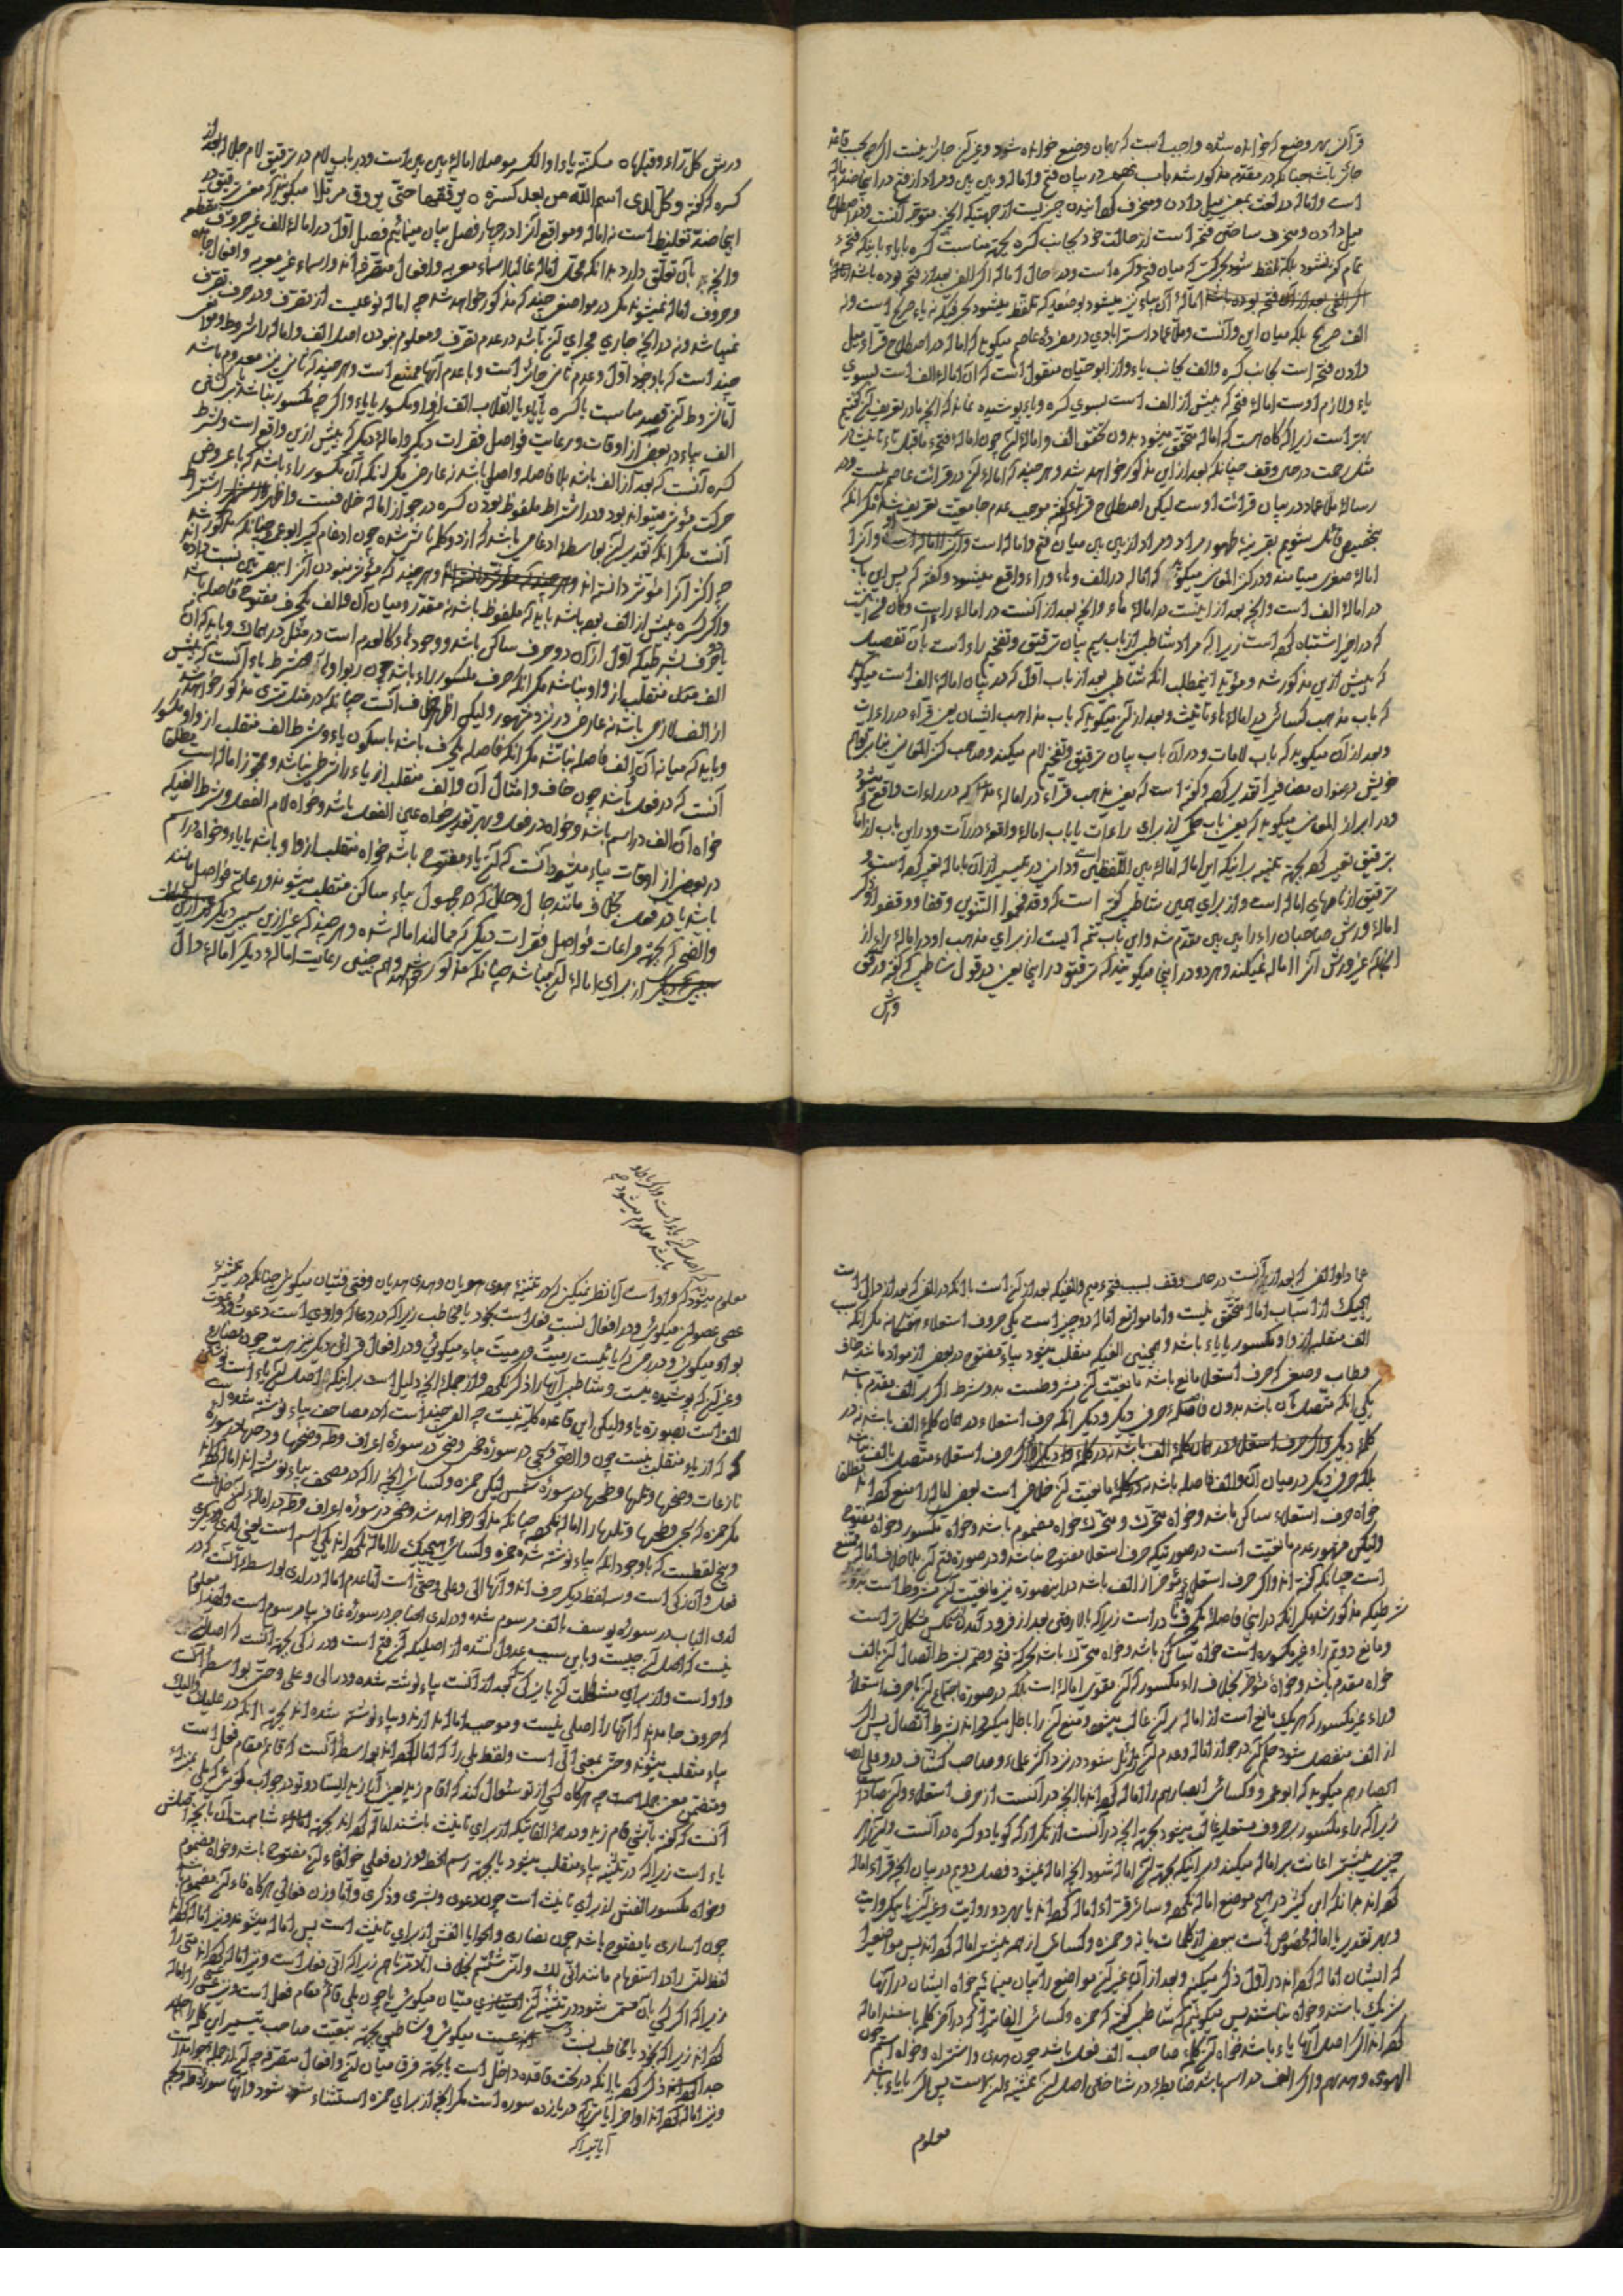 قرآن بهر وضع که خوانده شده واجب است که بهمان وضع خوانده شود و غیر آن جائز نیست اگر چه بحسب قاعده
جائز باشد چنانکه در مقدمه مذکور شد باب نهم در بیان فتح و اماله و بین بین و مراد از فتح در اینجا ضد اماله
است و اماله در لغت بمعنی میل دادن و منحرف گردانیدن چیزیست از جهتیکه آن چیز متوجه آنست و در اصطلاح
میل دادن و منحرف ساختن فتحه است از حالت خود بجانب کسره بجهة مناسبت کسره یا یاء باینکه فتحه
تمام گفته نشود بلکه تلفظ شود بحرکتی که میان فتحه و کسره است و در حال اماله اگر الف بعد از فتحه بوده باشد
اماله آن بیاء نیز میشود بوضعیکه تلفظ میشود بحرفیکه نه یاء صریح است و نه
الف صریح بلکه میان این و آنست و ملا عماد استرابادی در مفرده عاصم میگوید که اماله در اصطلاح قراء میل
دادن فتحه است بجانب کسره و الف بجانب یاء و از ابو حیان منقول است که آن اماله الف است بسوی
یاء و لازم اوست اماله فتحه که پیش از الف است بسوی کسره و یاء و پوشیده نماند که آنچه ما در تعریف آن گفتیم
بهتر است زیرا که گاه هست که اماله متحقق میشود بدون تحقق الف و اماله آن چون اماله فتحه ماقبل تاء تانیث در
مثل رحمت در حین وقف چنانکه بعد از این مذکور خواهد شد و هر چند که اماله آن در قرائت عاصم نیست و در
رساله ملا عماد در بیان قرائت اوست لیکن اصطلاح قراء گفتنه موجب عدم جامعیت تعریفش است مگر آنکه
بتخصیص قائل شویم بقرینه ظهور مراد و مراد از بین بین میان فتح و اماله است و آنرا
اماله صغری مینامند و در کنز المعانی میگوید که اماله در الف و هاء و راء واقع میشود و گفته که پس این باب
در اماله الف است و آنچه بعد از اینست در اماله هاء و آنچه بعد از آنست در اماله راءست
که در اخیر اشتباه کرده است زیرا که مراد شاطبی از باب سیم بیان ترقیق و تفخیم راء است بآن تفصیل
که پیش ازین مذکور شد و مؤید اینمطلب آنکه شاطبی بعد از باب اول که در بیان اماله الف است میگوید
که باب مذهب کسائی در اماله هاء تانیث و بعد از آن میگوید که باب مذاهب ایشان یعنی قراء در راءات
و بعد از آن میگوید که باب لامات و در آن باب بیان ترقیق و تفخیم لام میکند و صاحب کنز المعانی بنا بر توهم
خویش در عنوان مضافی تقدیر کرده و گفته است که یعنی مذهب قراء در اماله که در راءات واقع میشود
و در ابراز المعانی میگوید که یعنی باب حکم از برای راءات یا باب اماله واقعه در راءات و در این باب از اماله
بترقیق تعبیر کرده بجهة تنبیه بر اینکه این اماله اماله بین اللفظین است و دانی در تیسیر از آن باماله تعبیر کرده است و
ترقیق از نامهای اماله است و از برای همین شاطبی گفته است که و قد فخموا التنوین وقفا و رققوا
اماله ورش صاحبان راء را بین بین مقدم شد و این باب تتمه ایست از برای مذهب او در اماله راء از
آنجا که غیر ورش آنرا اماله نمیکند و هر دو در اینجا میگویند که ترقیق در اینجا یعنی در قول شاطبی که گفته و رقق
ورش
ورش کل راء و قبلها ٥ مسکنة یاء او الکسر موصلا اماله بین بین است و در باب لام در ترقیق لام جلاله بعد از
کسره که گفته و کل لدی اسم الله من بعد کسرة ٥ یرققها حتی یروق مرتلا میگویند که معنی ترقیق در
اینجا ضد تغلیظ است نه اماله و مواقع آنرا در چهار فصل بیان مینمائیم فصل اول در اماله الف غیر حروف مقطعه
و آنچه بآن تعلق دارد بدانکه محل اماله غالبا اسماء معربه و افعال متصرفه اند و اسماء غیر معربه و افعال جامده
و حروف اماله نمیشوند مگر در مواضعی چند که مذکور خواهد شد چه اماله نوعیست از تصرف و در حرف تصرف
نمیباشد و نه در آنچه جاری مجرای آن باشد در عدم تصرف و معلوم نبودن اصل الف و اماله را شروط و موانعی
چند است که با وجود اول و عدم ثانی جائز است و با عدم آنها ممتنع است و هر چند که ثانی نیز معدوم باشد
اما شروط آن قصد مناسبت با کسره یا یاء یا انقلاب الف از واو مکسور یا یاء و اگر چه مکسور نباشد
الف بیاء در بعضی از اوقات و رعایت فواصل فقرات دیگر و اماله دیگر که پیش ازین واقع است و شرط
کسره آنست که بعد از الف باشد بلا فاصله و اصلی باشد نه عارضی مگر آنکه آن مکسور راء باشد که با عروض
حرکت مؤثر میتواند بود و در اشتراط ملفوظ بودن کسره در جواز اماله خلافست و اظهر اشتراط
آنست مگر آنکه تقدیر آن بواسطه ادغامی باشد که از دو کلمه ناشی شده چون ادغام کبیر ابو عمرو چنانکه مذکور شد
چه اکثر آنرا مؤثر دانسته اند و هر چند که مؤثر نبودن آنرا ببصریین نسبت داده اند
و اگر کسره پیش از الف بوده باشد باید که ملفوظ باشد نه مقدر و میان آن و الف یکحرف مفتوح فاصله باشد
یا دو حرف بشرطیکه اول از آن دو حرف ساکن باشد و وجود هاء کالعدم است در مثل دربهماک و باید که آن
الف ممال منقلب از واو نباشد مگر آنکه حرف مکسور راء باشد چون ربوا و شرط یاء آنست که پیش
از الف لازمی باشد نه عارضی در نزد جمهور ولیکن اظهر خلاف آنست چنانکه در مثل تتری مذکور خواهد شد
و باید که میانه آن و الف فاصله نباشد مگر آنکه فاصله یکحرف باشد یا سکون یاء و شرط الف منقلب از واو مکسور
آنست که در فعل باشد چون خاف و امثال آن و الف منقلب از یاء را شرطی نباشد و مجوز اماله است مطلقا
خواه آن الف در اسم باشد و خواه در فعل و بهر تقدیر خواه عین الفعل باشد و خواه لام الفعل و شرط الفیکه
در بعضی از اوقات بیاء میشود آنست که آن یاء مفتوح باشد خواه منقلب از واو باشد یا یاء و خواه در اسم
باشد یا در فعل بخلاف مانند حال و حال که در مجهول بیاء ساکن منقلب میشوند و رعایت فواصل مانند
والضحی که بجهة مراعات فواصل فقرات دیگر که ممالند اماله شده و هر چند که غیر ازین سببی دیگر
از برای اماله آن نمیباشد چنانکه مذکور خواهد شد و همچنین رعایت اماله دیگر اماله دال
عمادا و الفی که بعد از آنست در حین وقف بسبب فتحه میم و الفیکه بعد از آن است با آنکه در الفی که بعد از دال است
هیچیک از اسباب اماله متحقق نیست و اما موانع اماله دو چیز است یکی حروف استعلاء هفتگانه مگر آنکه سبب
الف منقلب از واو مکسور یا یاء باشد و همچنین الفیکه منقلب میشود بیاء مفتوح در بعضی از مواد مانند خاف
و طاب و صغی که حرف استعلا مانع نباشد و مانعیت آن مشروطست بدو شرط اگر بر الف مقدم باشد
یکی آنکه متصل بآن باشد بدون فاصله حرفی دیگر و دیگر آنکه حرف استعلاء در همان کلمه الف باشد نه در
کلمه دیگر و اگر حرف استعلاء متصل بالف نباشد
بلکه حرفی دیگر در میان آن و الف فاصله باشد در مانعیت آن خلافی است بعضی اماله را منع کرده اند مطلقا
خواه حرف استعلاء ساکن باشد و خواه متحرک و متحرک خواه مضموم باشد و خواه مکسور و خواه مفتوح
ولیکن مشهور عدم مانعیت است در صورتیکه حرف استعلا مفتوح نباشد و در صورت فتح آن بلا خلاف اماله ممتنع
است چنانکه گفته اند و اگر حرف استعلاء مؤخر از الف باشد در اینصورت نیز مانعیت آن مشروط است بدو
شرطیکه مذکور شد مگر آنکه در اینجا فاصله یکحرف نادر است زیرا که بالا رفتن بعد از فرود آمدن از عکس مشکل تر است
و مانع دویم راء غیر مکسوره است خواه ساکن باشد و خواه متحرک باشد بحرکت فتح و ضم بشرط اتصال آن بالف
خواه مقدم باشد و خواه مؤخر بخلاف راء مکسور که آن مقوی اماله است بلکه در صورت اجتماع آن با حرف استعلاء
و راء غیر مکسور که هر یک مانع است از اماله بر آن غالب میشود و منع آن را باطل میگرداند بشرط اتصال پس اگر
از الف منفصل شود حکم آن در جواز اماله و عدم آن زائل شود در نزد اکثر علماء و صاحب کشاف در و علی
ابصارهم میگوید که ابو عمرو و کسائی ابصارهم را اماله کرده اند با آنچه در آنست از حرف استعلاء و آن صاد است
زیرا که راء مکسور بر حروف مستعلیه غالب میشود بجهة آنچه در آنست از تکرار که گویا دو کسره در آنست و آن از هر
چیزی بیشتر اعانت بر اماله میکند و بر اینکه بجهة آن اماله شود آنچه اماله نمیشود فصل دویم در بیان آنچه قراء اماله
کرده اند بدانکه ابن کثیر در هیچ موضع اماله نکرده و سائر قراء اماله کرده اند یا بهر دو روایت و غیر آن یا بیک روایت
و بهر تقدیر یا اماله مخصوص است ببعضی از کلمات یا نه و حمزه و کسائی از همه بیشتر اماله کرده اند پس مواضعی را
که ایشان اماله کرده اند در اول ذکر میکنیم و بعد از آن غیر آن مواضع را بیان مینمائیم خواه ایشان در آنها
شریک باشند و خواه نباشند پس میگوئیم که شاطبی گفته که حمزه و کسائی الفاتی را که در آخر کلمه باشند اماله
کرده اند اگر اصل آنها یاء باشد خواه آن کلمه صاحب الف فعل باشد چون هدی و اشتراه و خواه اسم چون
الهوی و هدیهم و اگر الف در اسم باشد ضابطه در شناختن اصل آن تثنیه آن اسمست پس اگر بیاء باشد
معلوم
که اصل آن یاء است و اگر بواو
باشد معلوم میشود
معلوم میشود که واو است آیا نظر نمیکنی که در تثنیه هدی هدیان و هدی هدیان و فتی فتیان میگوئی چنانکه در تثنیه
عصی عصوان میگوئی و در افعال نسبت فعل است بخود یا مخاطب زیرا که در دعا که واوی است دعوت و دعوت
بواو میگوئی و در رمی که یائیست رمیت و رمیت بیاء میگوئی و در افعال قرائن دیگر نیز هست چون مضارع
و غیر آن که پوشیده نیست و شاطبی آنها را ذکر نکرده و از جمله آنچه دلیل است بر اینکه اصل آن یاء است نوشتن
الف است بصورة یاء ولیکن این قاعده کلیه نیست چه الفی چند است که در مصاحف بیاء نوشته شده
که از یاء منقلب نیست چون والضحی و سجی در سوره ضحی و ضحی در سوره اعراف و طه و ضحیها و دحیها در سوره
نازعات و ضحیها و تلیها و طحیها در سوره شمس لیکن حمزه و کسائی آنچه را که در مصحف بیاء نوشته اند اماله کرده اند
مگر حمزه که سجی و طحیها و تلیها را اماله نکرده چنانکه مذکور خواهد شد و ضحی در سوره اعراف و طه در اماله آن خلافیست
و پنج لفظست که با وجود آنکه بیاء نوشته شده حمزه و کسائی هیچیک را اماله نکرده اند یکی اسم است یعنی لدی و دیگری
فعل و آن زکی است و سه لفظ دیگر حرف اند و آنها الی و علی و حتی است اما عدم اماله در لدی بواسطه آنست که در
لدی الباب در سوره یوسف بالف مرسوم شده و در لدی الحناجر در سوره غافر بیاء مرسوم است و لهذا معلوم
نیست که اصل آن چیست و باین سبب عدول نشده از اصلیکه آن فتح است و در زکی بجهة آنست که اصل آن
واو است و از برای مشاکلت آن با یزکی که بعد از آنست بیاء نوشته شده و در الی و علی و حتی بواسطه آنست
که حروف جامدند که آنها را اصلی نیست و موجب اماله ندارند و بیاء نوشته شده اند بجهة آنکه در علیک و الیک
بیاء منقلب میشوند و حتی بمعنی الی است و لفظ بلی را که اماله کرده اند بواسطه آنست که قائم مقام فعل است
و متضمن معنی جمله است چه هرگاه کسی از تو سئوال کند که أقام زید یعنی آیا زید ایستاد و تو در جواب گوئی که بلی بمنزله
آنست که گفته باشی قام زید و در همه الفاتیکه از برای تانیث باشند اماله کرده اند بجهة شباهت آن بآنچه اصلش
یاء است زیرا که در تثنیه بیاء منقلب میشود یا بجهة رسم الخط و وزن فعلی خواه فاء آن مفتوح باشد و خواه مضموم
و خواه مکسور الفش از برای تانیث است چون دعوی و بشری و ذکری و اما وزن فعالی هرگاه فاء آن مضموم باشد
چون اساری یا مفتوح باشد چون نصاری و ایامی الفش از برای تانیث است پس اماله میشود و نیز اماله کرده اند
لفظ انی را در استفهام مانند انی لک و انی شئتم بخلاف انا دمرناهم زیرا که انی فعلی است و نیز اماله کرده اند متی را
زیرا که اگر کسی بآن مسمی شود در تثنیه آن متیان میگوئی یا چون بلی قائم مقام فعل است و نیز عسی را اماله
کرده اند زیرا که بخود یا مخاطب نسبت عسیت میگوئی و شاطبی بجهة تبعیت صاحب تیسیر این کلمه را علیحده
جدا کرده ذکر کرده با آنکه در تحت قاعده داخل است یا بجهة فرق میان آن و افعال متصرفه چه آن از جمله جوامد است
و نیز اماله کرده اند اواخر آیاتیرا که در یازده سوره است مگر آنچه از برای حمزه استثناء شود و آنها سوره طه و نجم
آیاتیرا که